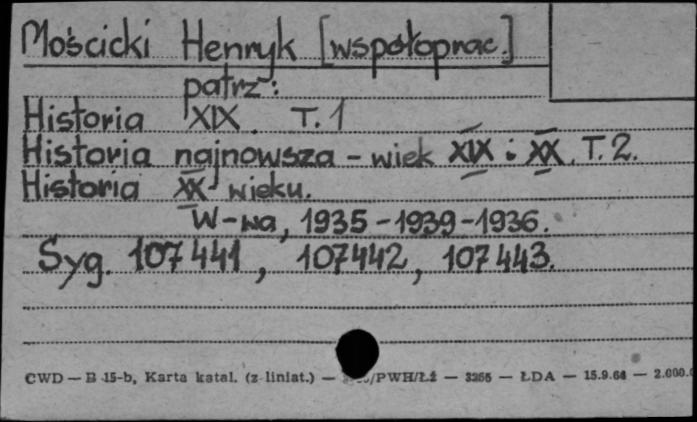 Mościcki Henryk [współoprac.]
patrz:
Historia XIX. T. 1
Historia najnowsza - wiek XIX i XX. T. 2.
Historia XX wieku.
W-wa, 1935-1939-1936.
Syg. 107441, 107442, 107443.
CWD — B 15-b, Karta katal. (z liniat.) — /PWH/Łż — 3266 — ŁDA — 15.9.64 — 2.000.0